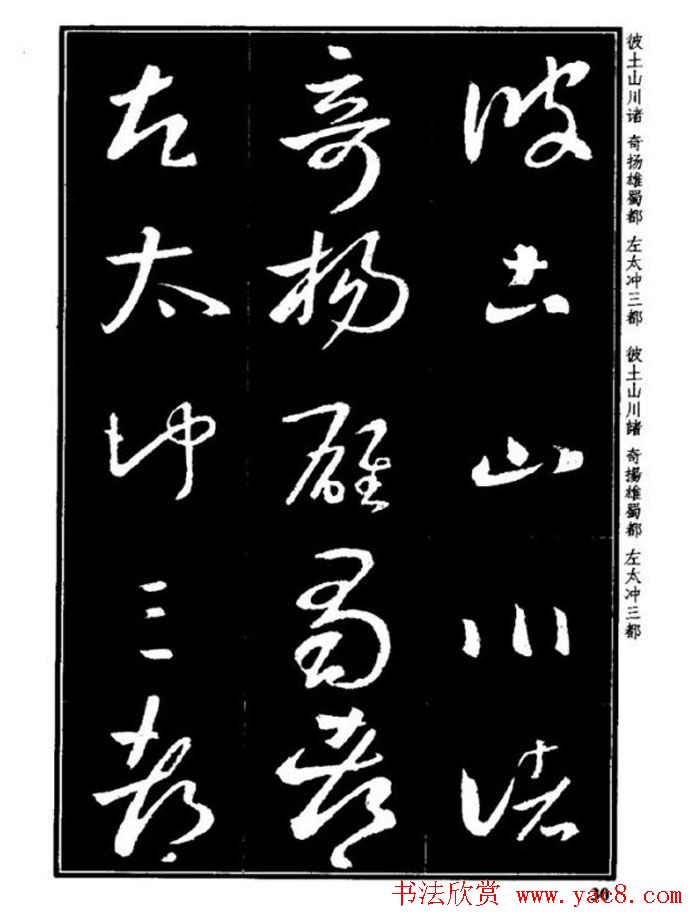 彼土山川诸
奇扬雄蜀都
左太冲三都
彼土山川諸
奇揚雄蜀都
左太冲三都
彼土山川諸
奇楊雄蜀都
左太冲三都
30
书法欣赏 www.yac8.com